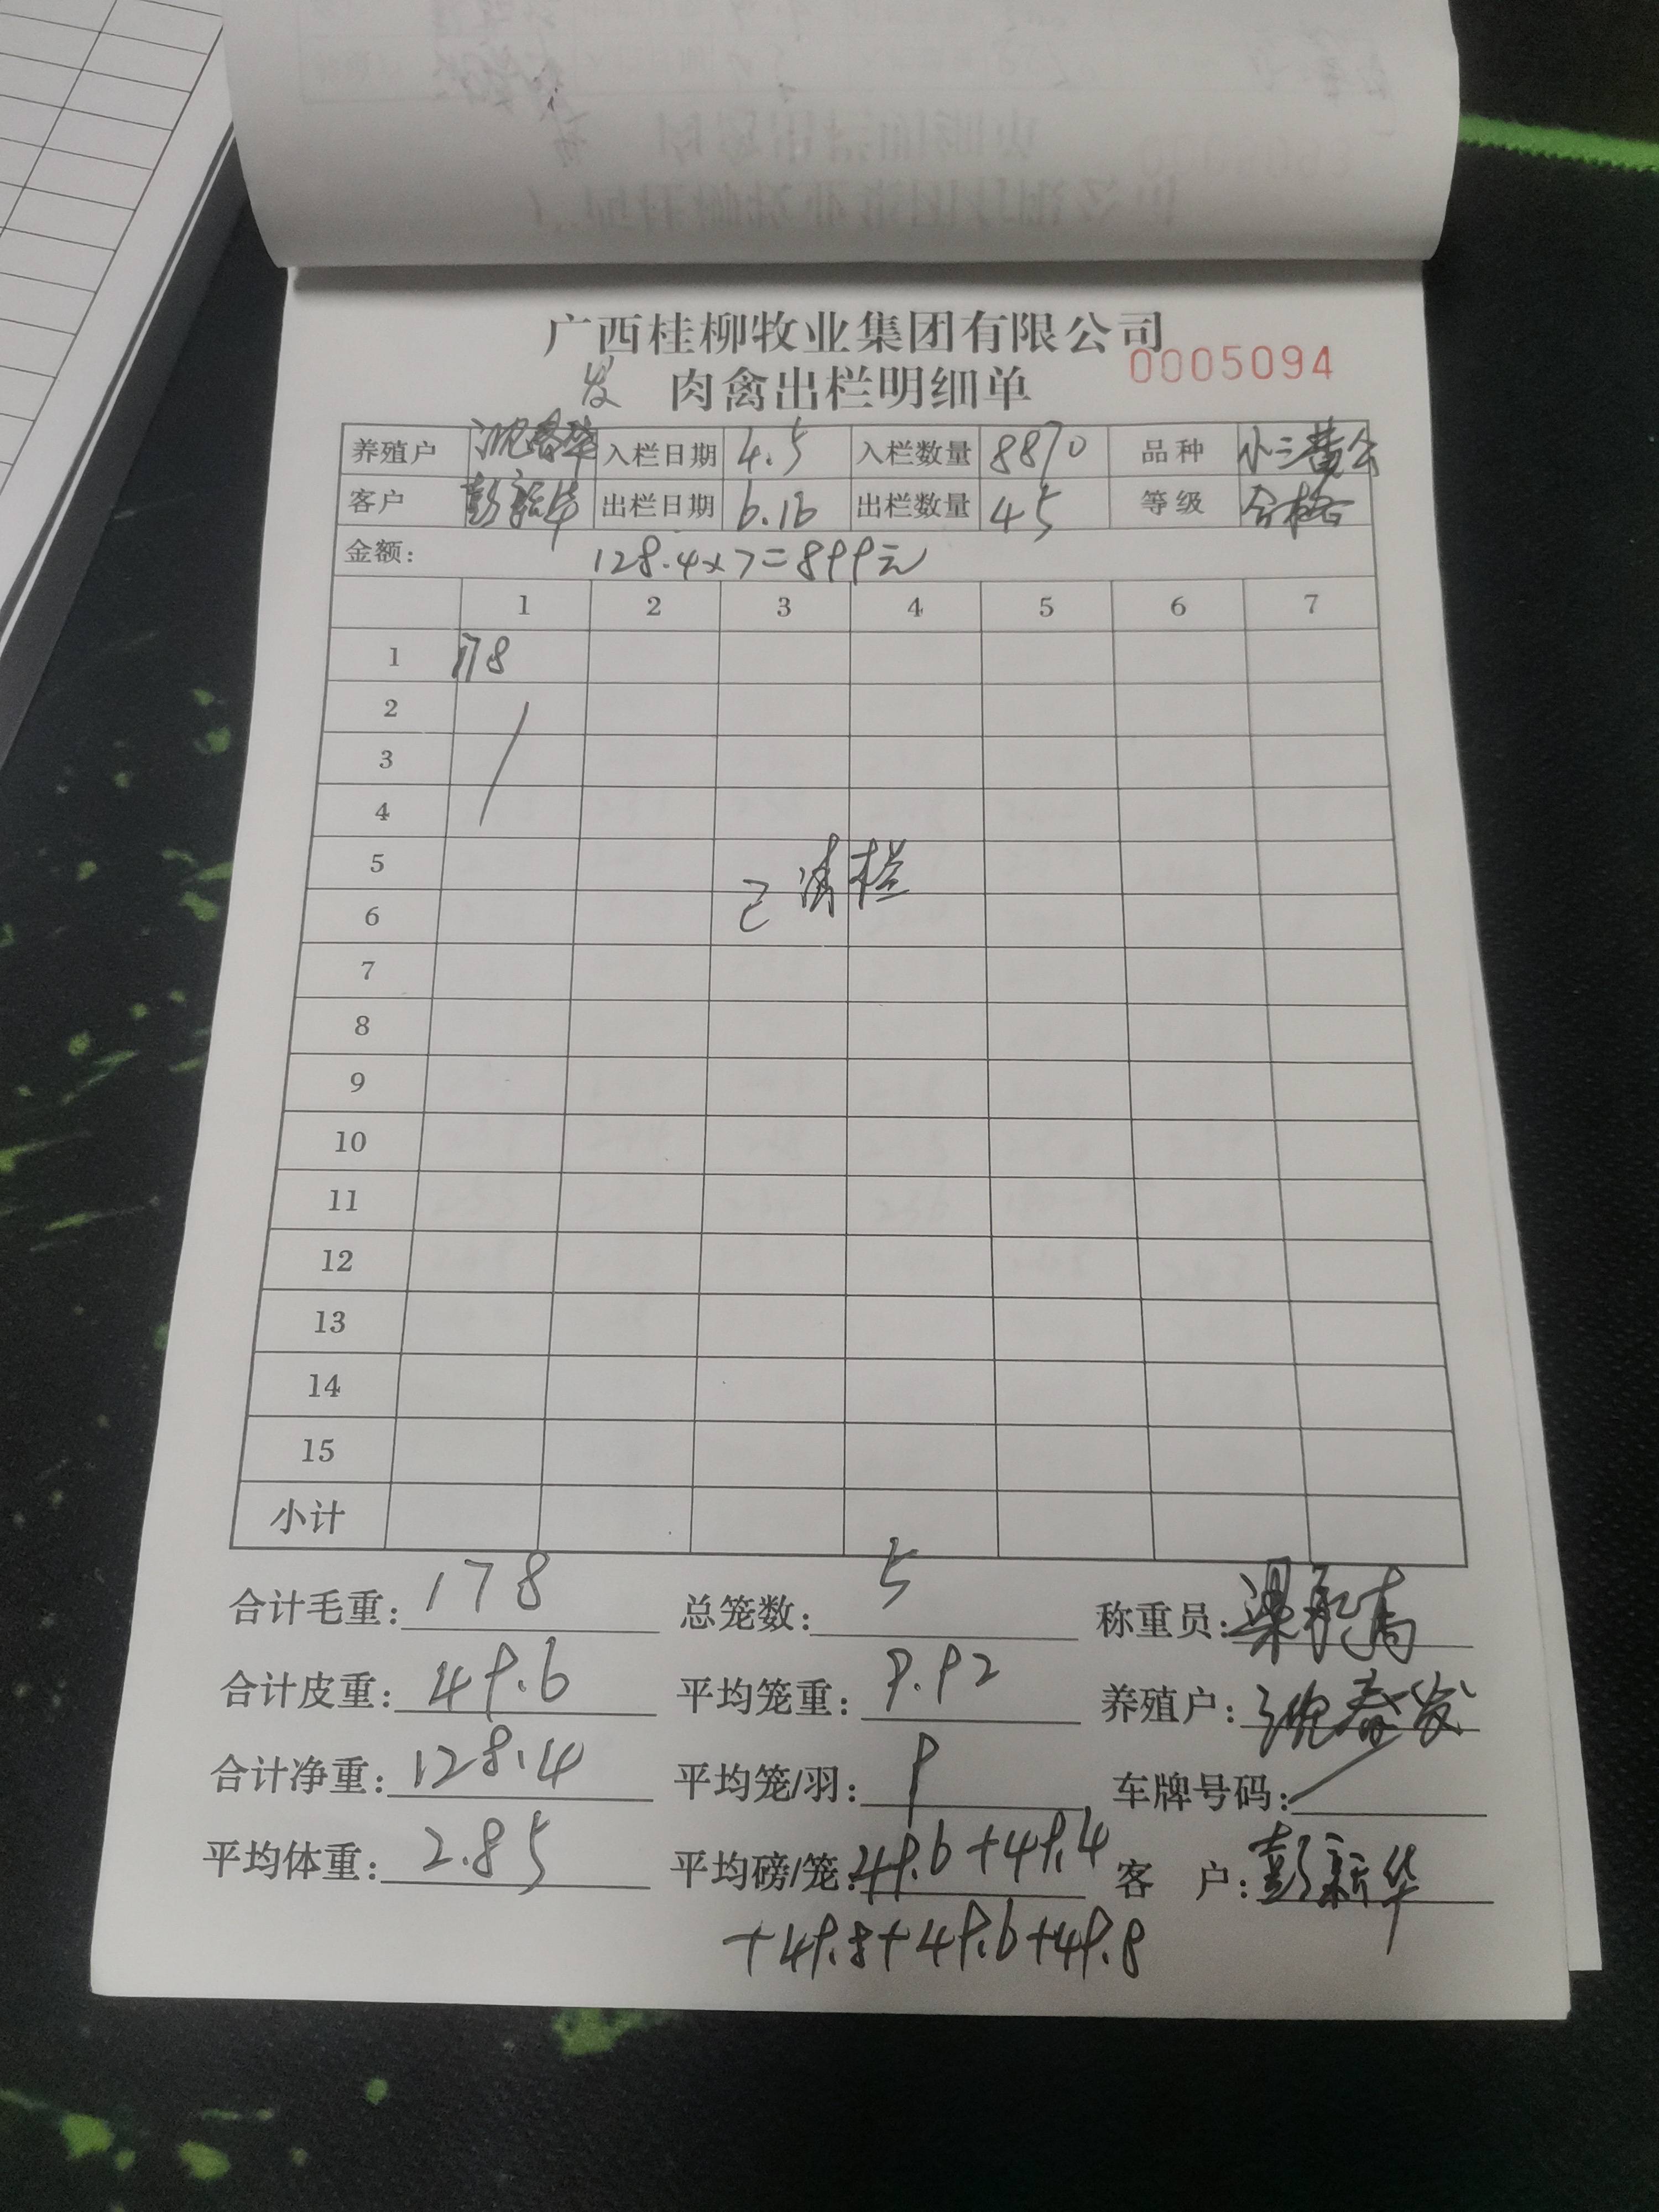 广西桂柳牧业集团有限公司
0005094
发 肉禽出栏明细单
养殖户 沈春华 入栏日期 4.5 入栏数量 8870 品种 小三黄公
客户 彭新华 出栏日期 6.16 出栏数量 45 等级 合格
金额: 128.4×7=899元
1 2 3 4 5 6 7
1 178
2
3
4
5
已清栏
6
7
8
9
10
11
12
13
14
15
小计
合计毛重: 178 总笼数: 5 称重员:
合计皮重: 49.6 平均笼重: 9.92 养殖户: 沈春发
合计净重: 128.4 平均笼/羽: 9 车牌号码:
平均体重: 2.85 平均磅/笼: 49.6+49.4 客 户: 彭新华
+49.8+49.6+49.8